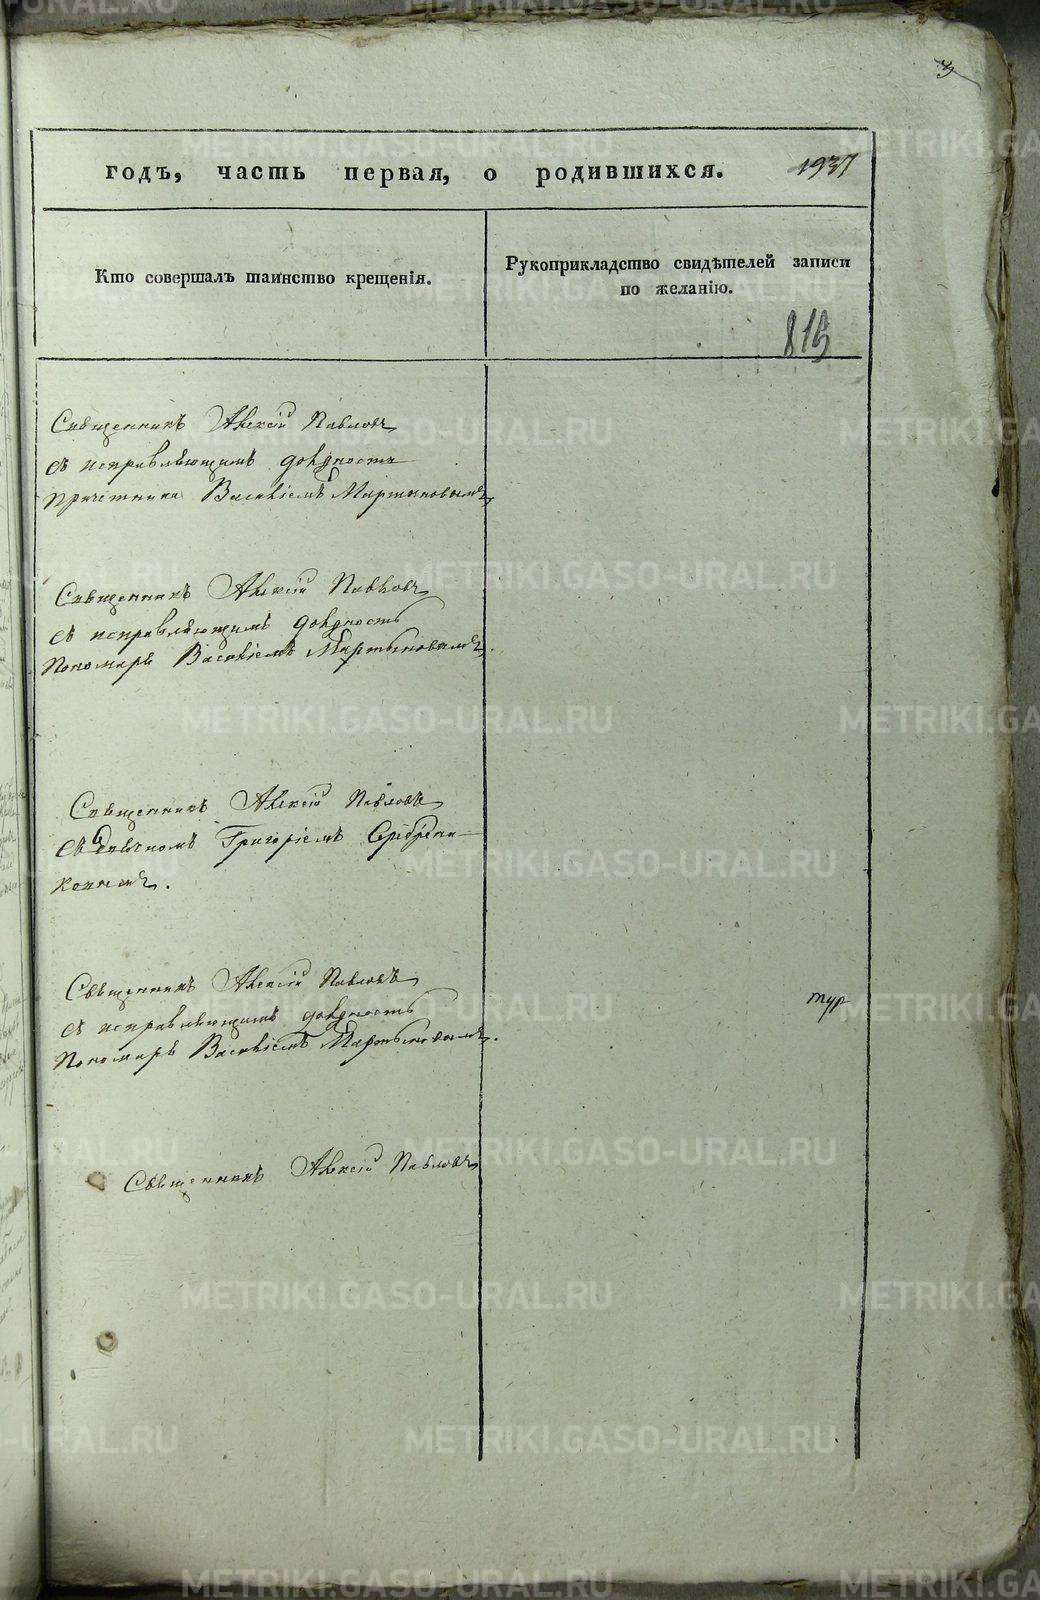 3
годъ, часть первая, о родившихся. 1937
Кто совершалъ таинство крещенія.
Рукоприкладство свидѣтелей записи
по желанію.
819
Священникъ Алексій Павловъ
съ исправляющимъ должность
причетника Василіемъ Мартыновымъ
Священникъ Алексій Павловъ
съ исправляющимъ должность
Пономаря Василіемъ Мартыновымъ.
Священникъ Алексій Павловъ
съ Григоріемъ Серебрени
ковымъ.
Священникъ Алексій Павловъ
съ исправляющимъ должность
Пономаря Василіемъ Мартыновымъ.
Священникъ Алексій Павловъ
METRIKI.GASO-URAL.RU